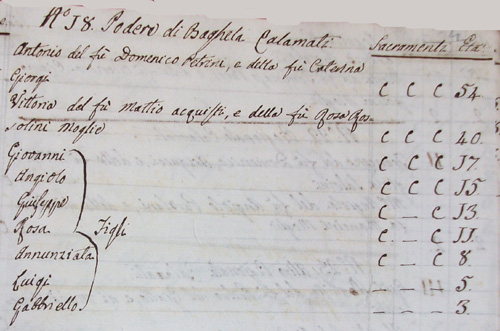 No. 18. Podere di Baghela Calamati
Sacramenti Età
Antonio del fù Domenico Petrini, e della fù Caterina
Giorgi C C C 54.
Vittoria del fù Mattio acquisti, e della fù Rosa Ros-
solini Moglie C C C 40.
Giovanni C C C 17.
Angiolo C C C 15
Giuseppe C – C 13
Rosa Figli C – C 11
Annunziata C – C 8
Luigi – – – 5.
Gabbriello – – – 3.